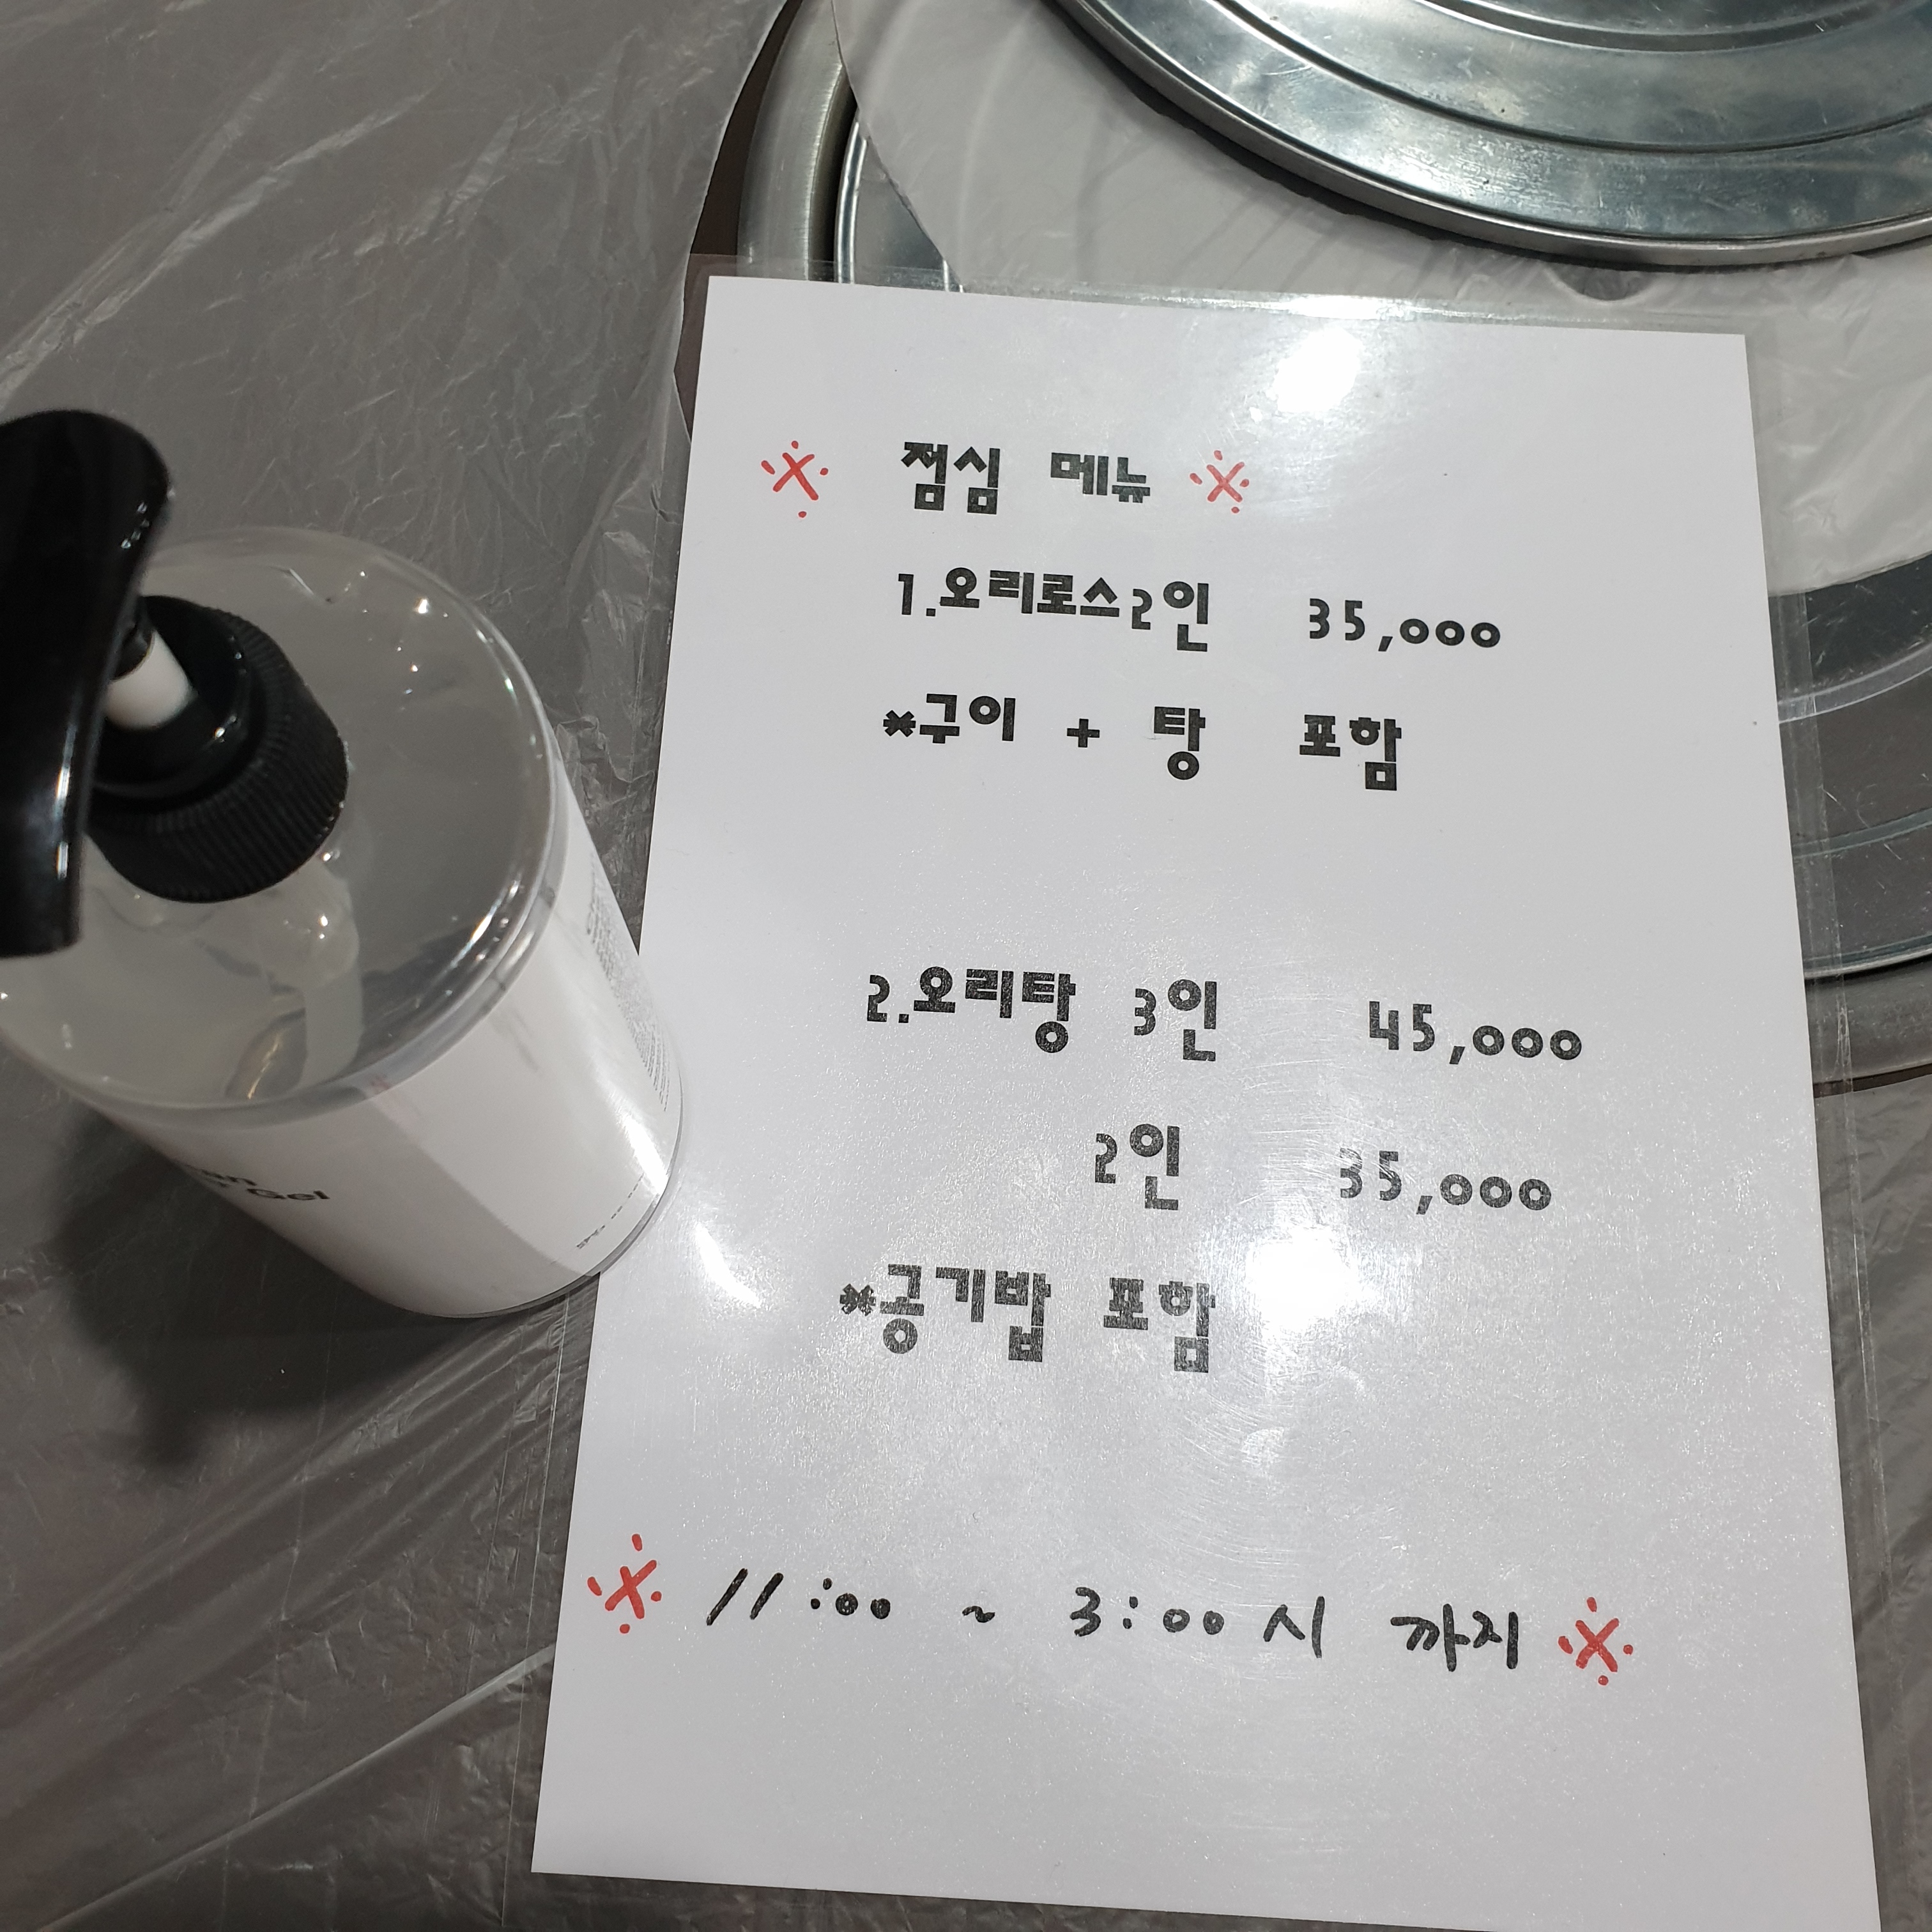 ※ 점심 메뉴 ※
1.오리로스2인 35,000
*구이 + 탕 포함
2.오리탕 3인 45,000
2인 35,000
*공기밥 포함
※ 11:00 ~ 3:00시 까지 ※
Gel